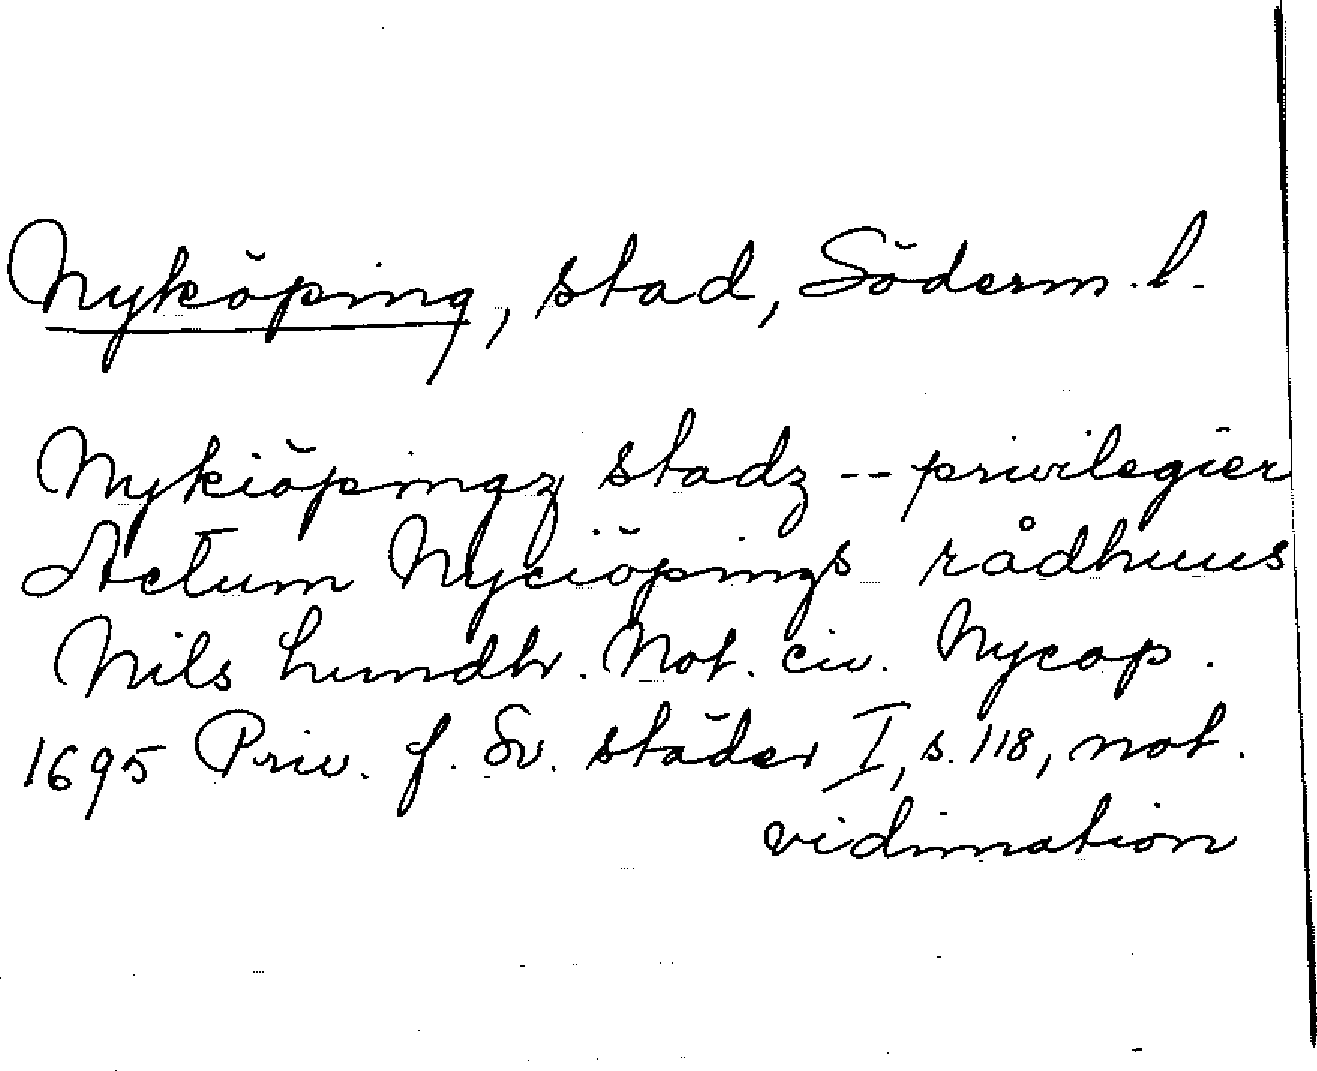 Nyköping, stad, Söderm. l.
Nykiöpingz stadz -- privilegier
Actum Nyciöpings rådhuus
Nils Lundh. Not. civ. Nycop.
1695 Priv. f. Sv. städer I, s. 118, not.
vidimation